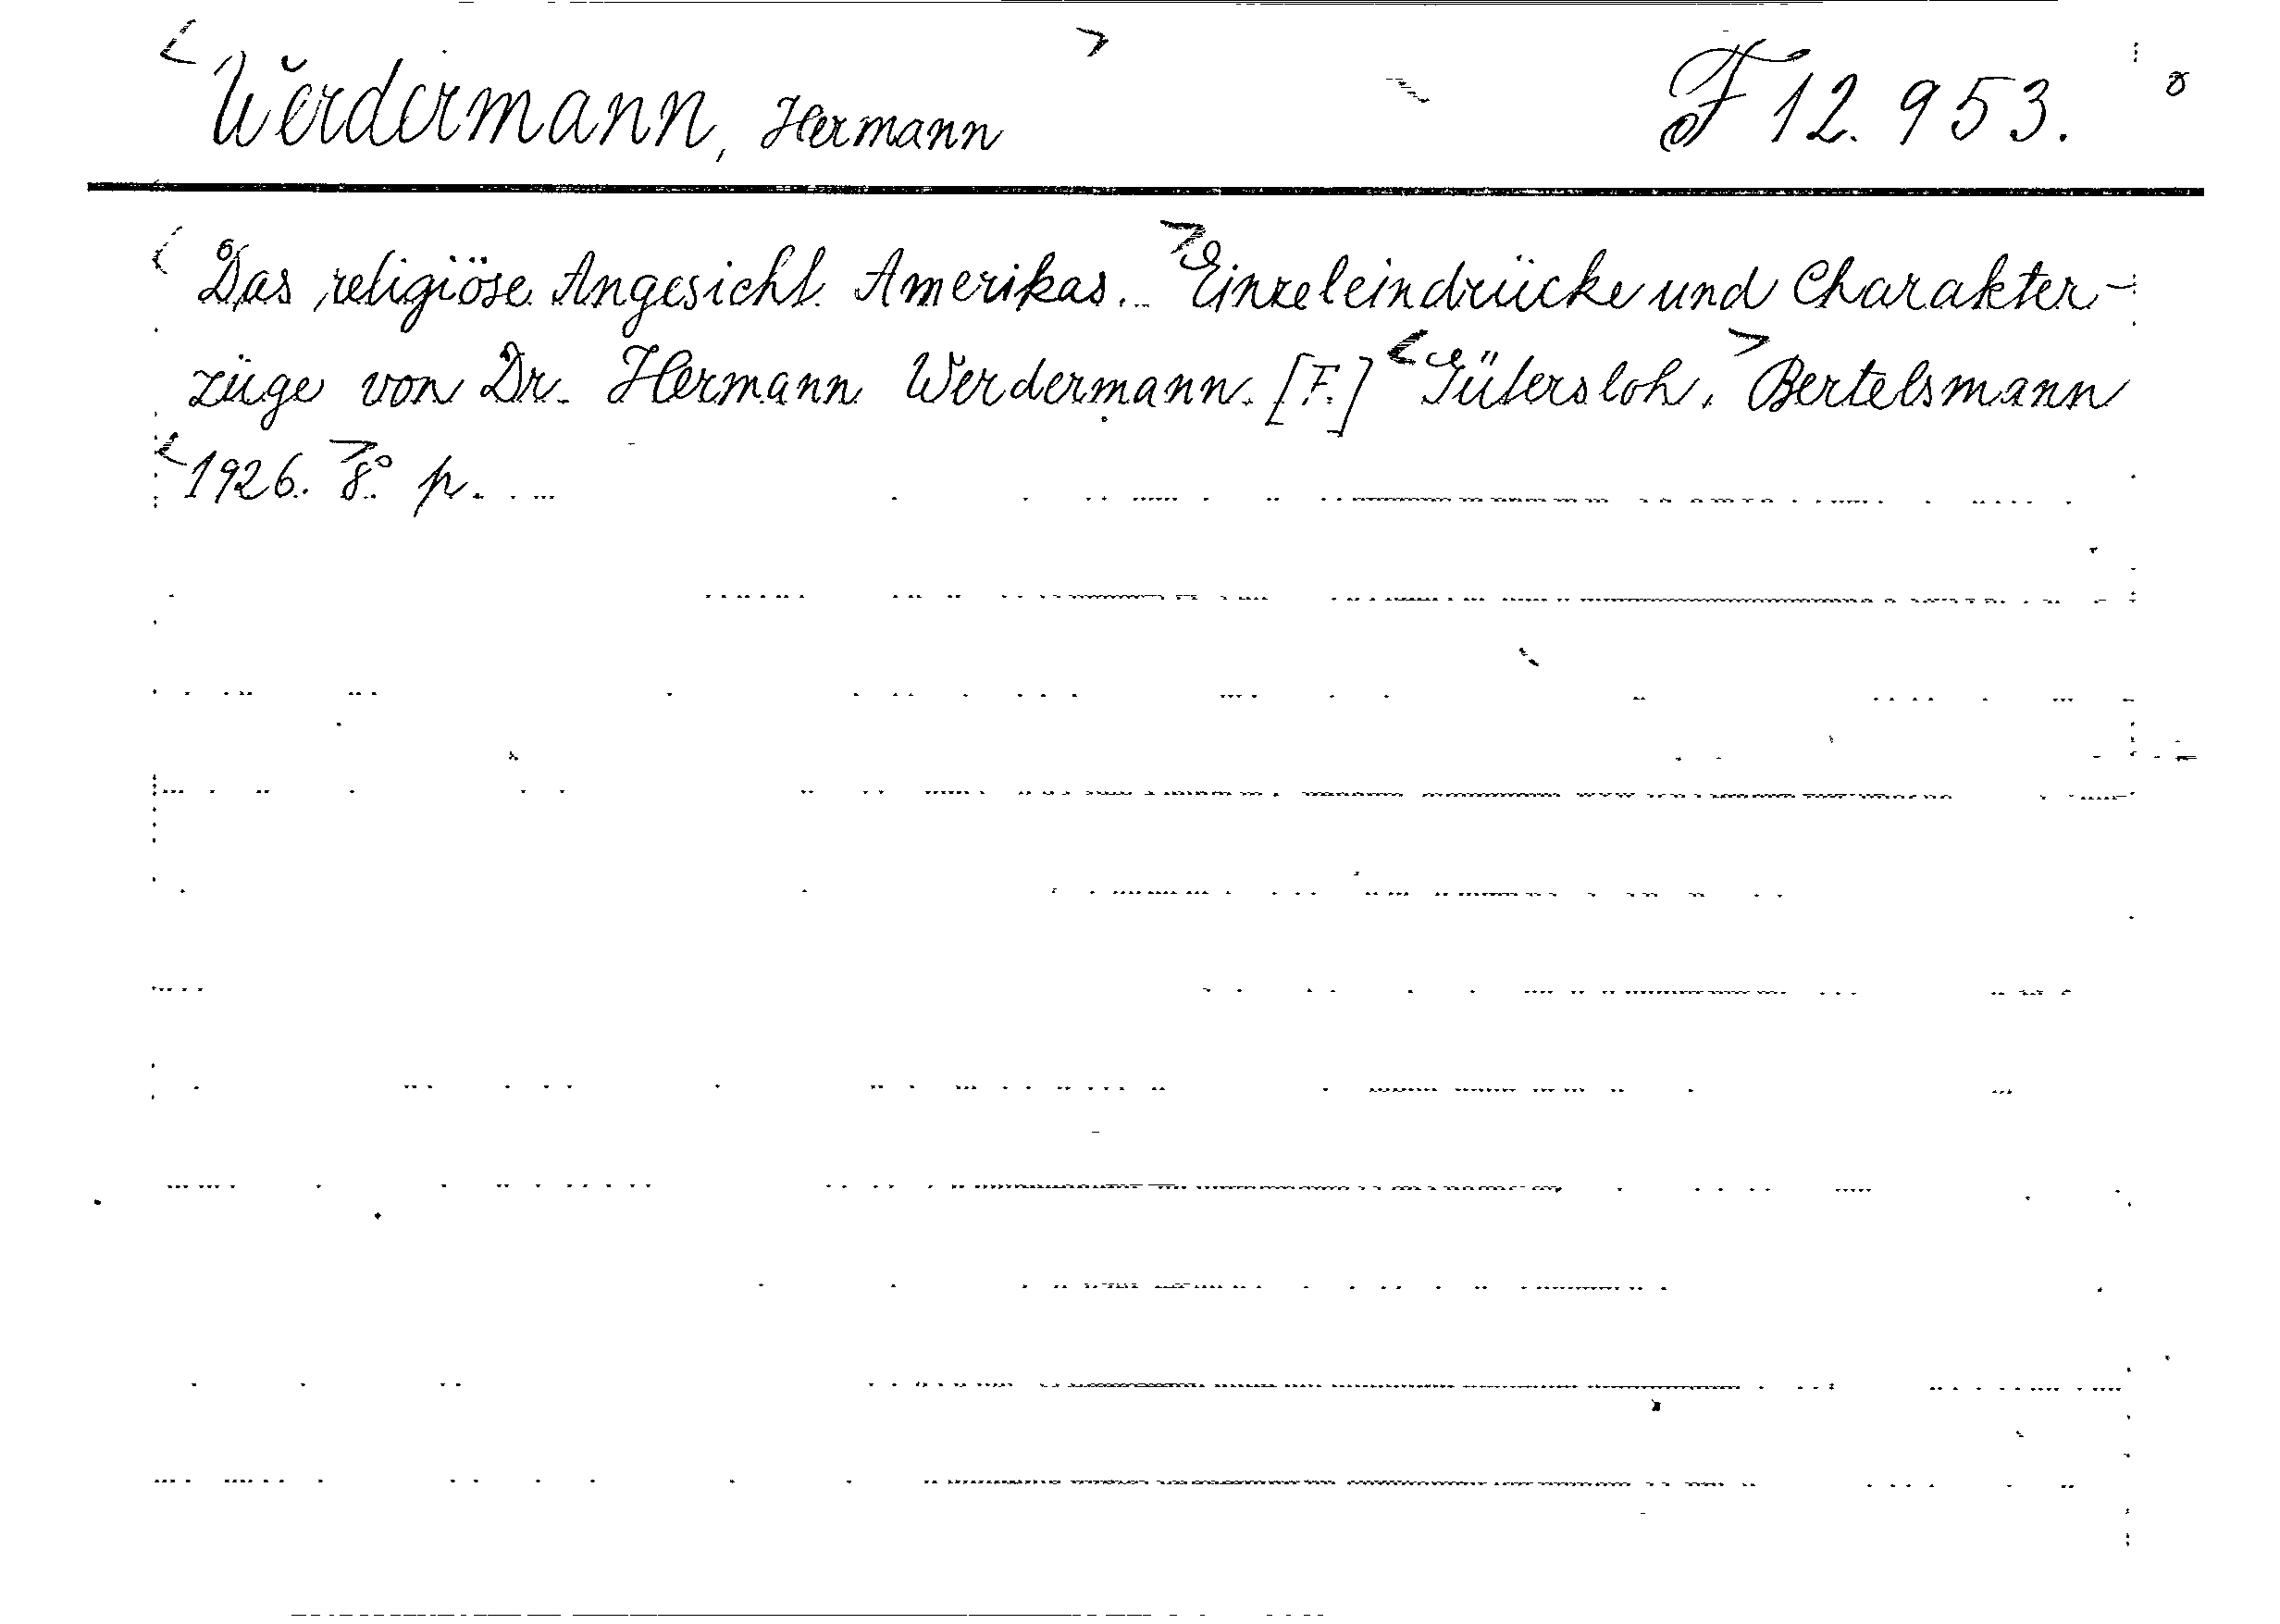 Werdermann, Hermann F 12.953. 8
Das religiöse Angesicht Amerikas... Einzeleindrücke und Charakter-
züge von Dr. Hermann Werdermann. [F.] Gütersloh, Bertelsmann
1926. 8° p. ...